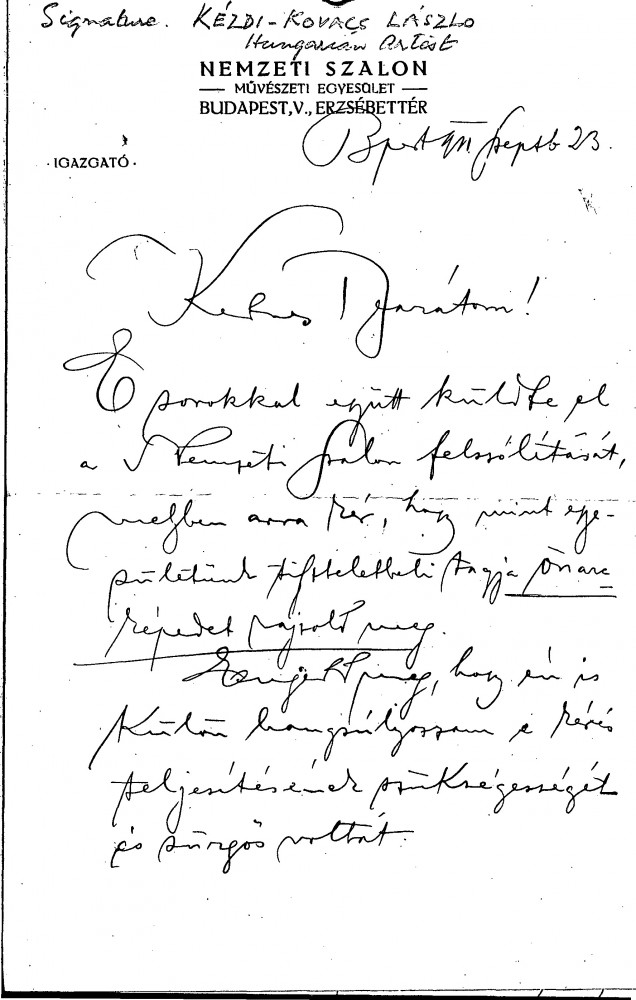 Signature. KÉZDI-KOVACS LÁSZLO
Hungarian Artist
NEMZETI SZALON
— MŰVÉSZETI EGYESÜLET —
BUDAPEST, V., ERZSÉBETTÉR
Bpest septb 23.
· IGAZGATÓ ·
Kedves Barátom!
E sorokkal együtt küldte el
a Nemzeti Szalon felszólítását,
melyben arra kér, hogy mint egye-
sületünk tiszteletbeli tagja önarc
képedet rajzold meg.
Engedd meg, hogy én is
külön hangsúlyozzam e kérés
teljesítésének szükségességét
és sürgős voltát.